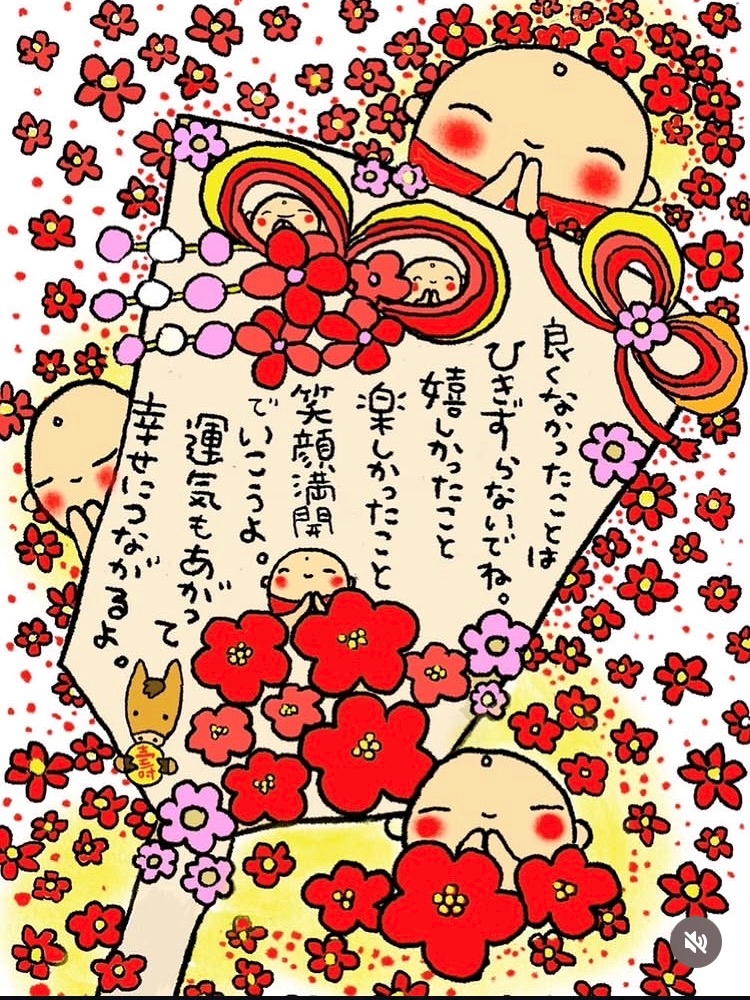 良くなかったことは
ひきずらないでね。
嬉しかったこと
楽しかったこと
笑顔満開
でいこうよ。
運気もあがって
幸せにつながるよ。
壽